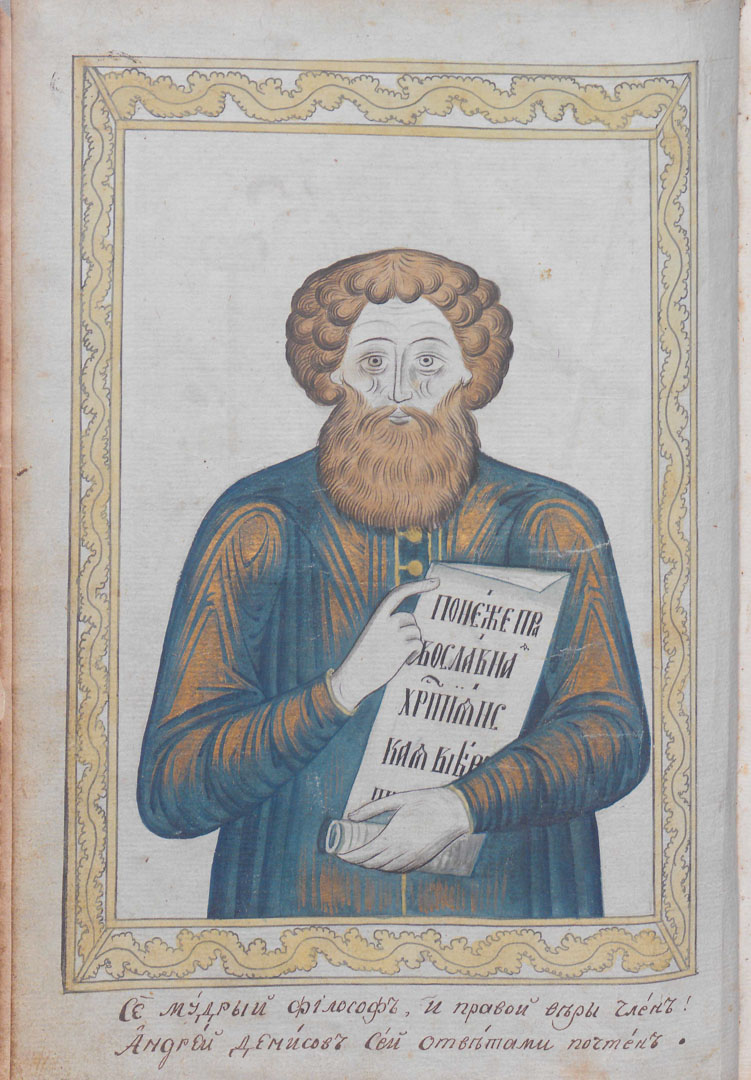 ПОНЕ́ЖЕ ПРА
ВОСЛА́ВНАѦ
ХР҇ТІѦ́НС
КАѦ ВѢ́
Се́ мꙋ́дрый філософъ, и правой вѣры чле́нъ!
Андре́й Дени́совъ се́й отвѣ́тами почте́нъ.